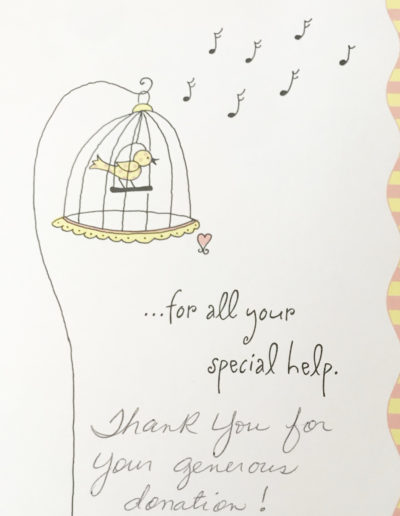 ...for all your
special help.
Thank You for
your generous
donation!